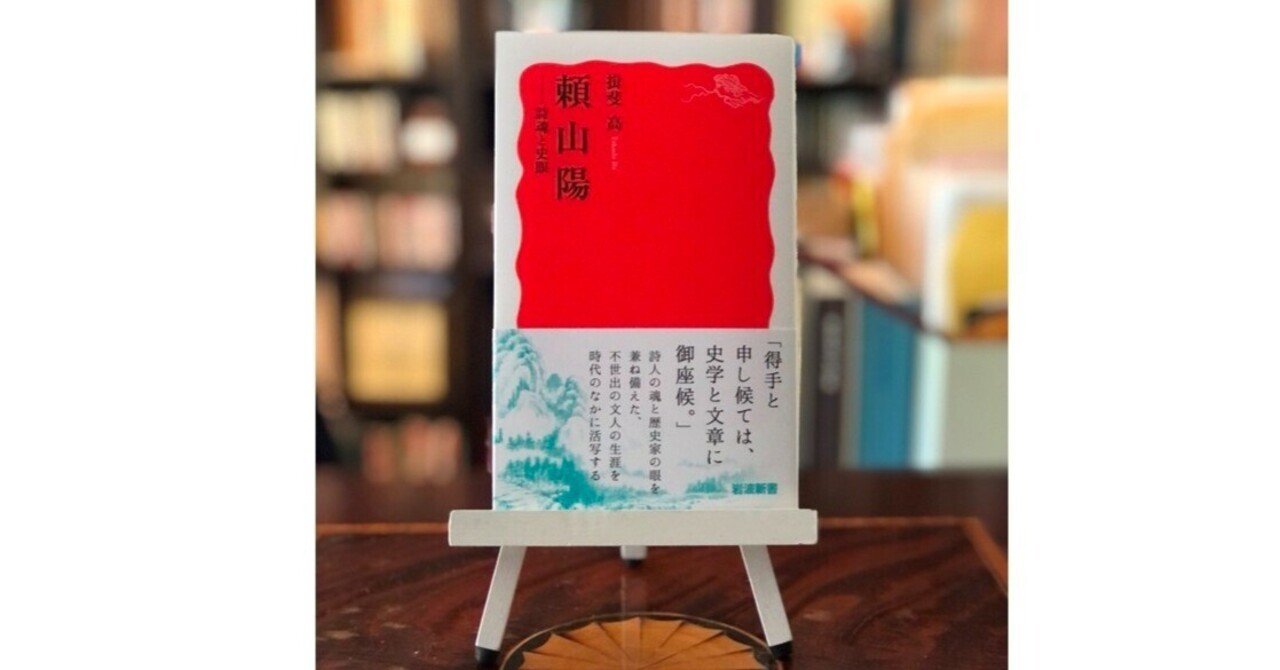 揖斐 高
Takashi Ibi
頼山陽
――詩魂と史眼
「得手と
申し候ては、
史学と文章に
御座候。」
詩人の魂と歴史家の眼を
兼ね備えた、
不世出の文人の生涯を
時代のなかに活写する
岩波新書